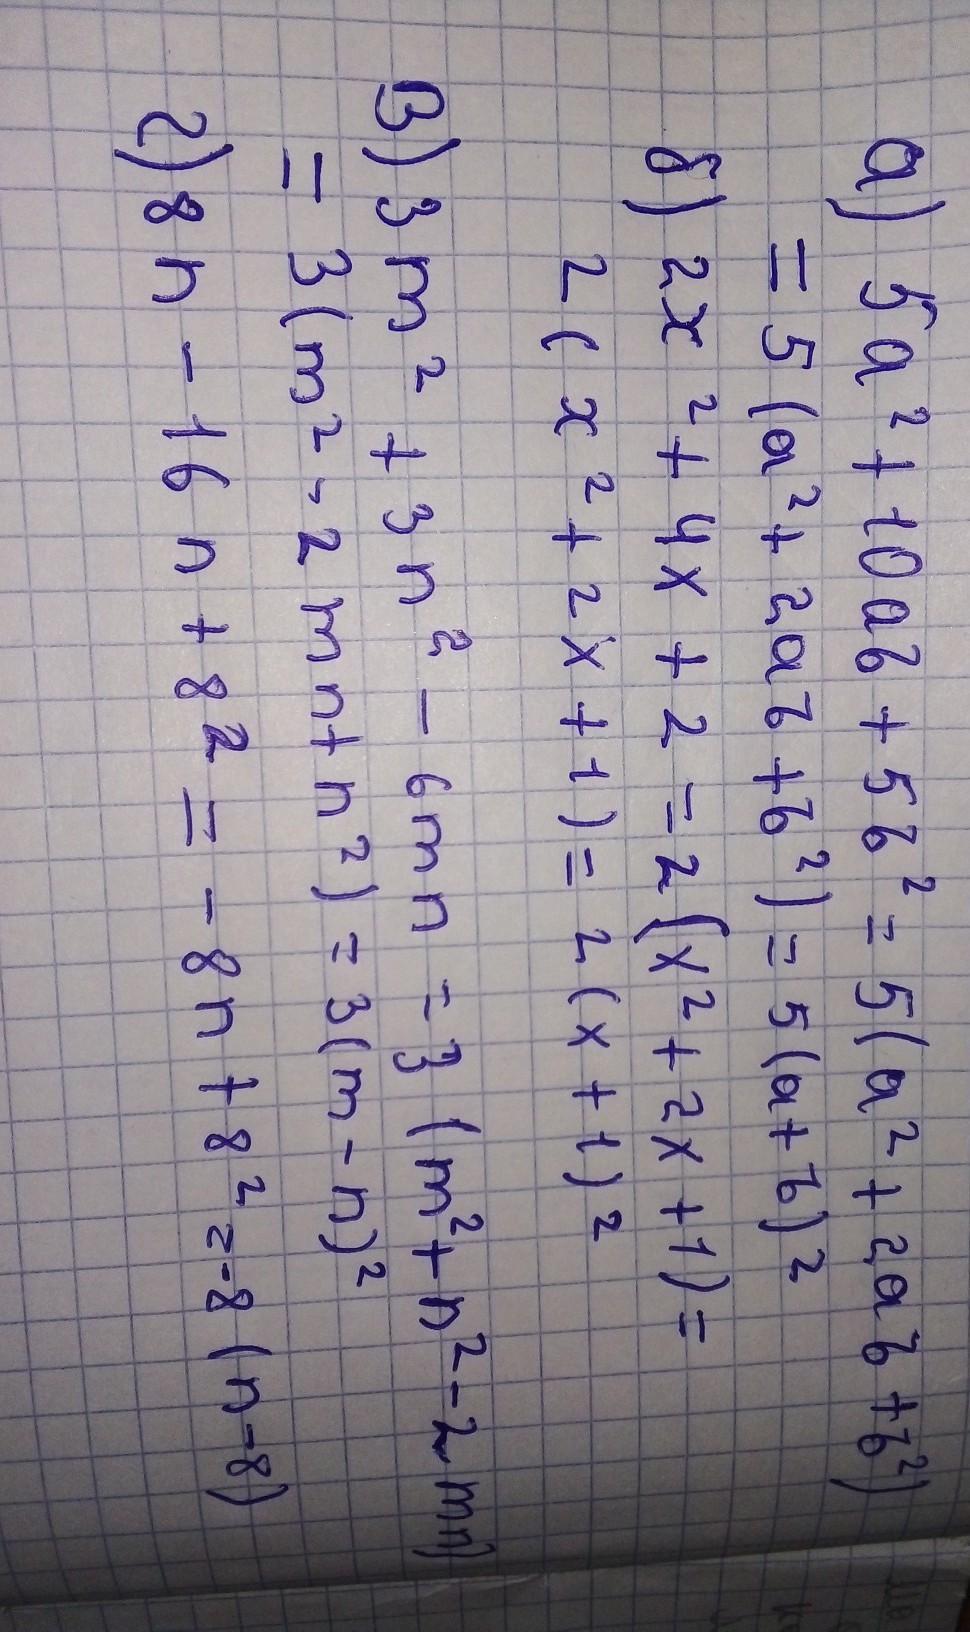 а) 5a² + 10ab + 5b² = 5(a² + 2ab + b²)
= 5(a² + 2ab + b²) = 5(a + b)²
б) 2x² + 4x + 2 = 2(x² + 2x + 1) =
2(x² + 2x + 1) = 2(x + 1)²
в) 3m² + 3n² - 6mn = 3(m² + n² - 2mn)
= 3(m² - 2mn + n²) = 3(m - n)²
г) 8n - 16n + 8² = -8n + 8² = -8(n-8)